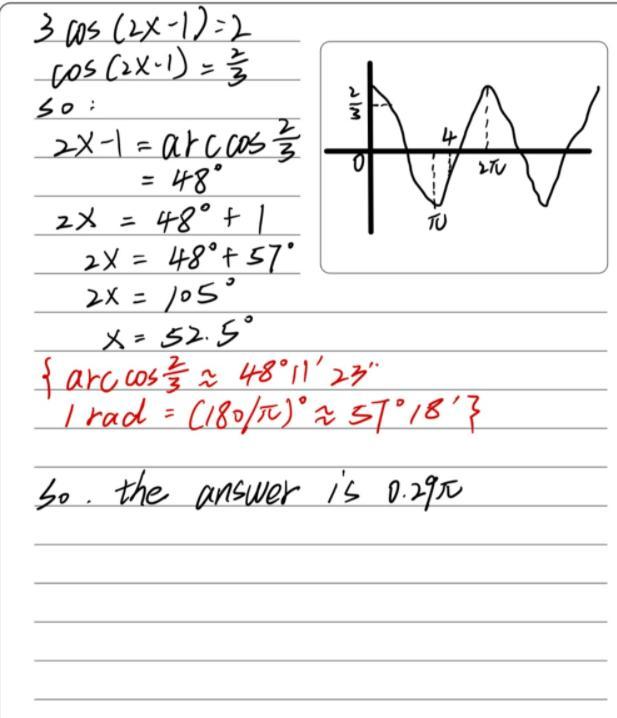 3 cos (2x-1)=2
cos (2x-1) = 2/3
so :
2x-1 = arc cos 2/3
= 48°
2x = 48° + 1
2x = 48° + 57°
2x = 105°
x = 52.5°
{ arc cos 2/3 ≈ 48°11′23″
1 rad = (180/π)° ≈ 57°18′}
So. the answer is 0.29π
2/3
4
0
2π
π